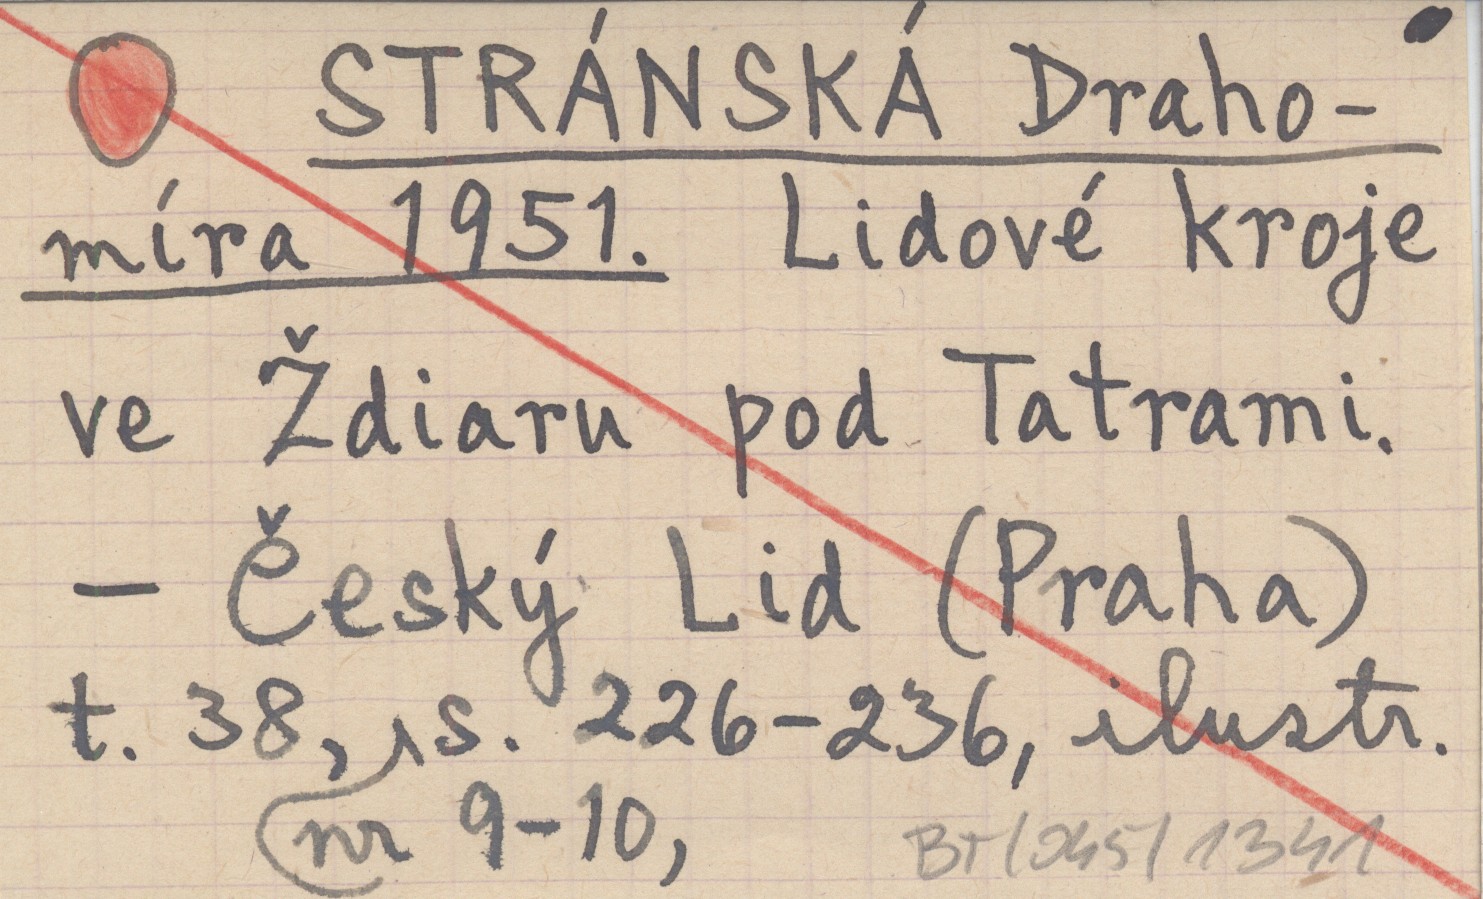 STRÁNSKÁ Draho-
míra 1951. Lidové kroje
ve Ždiaru pod Tatrami.
– Český Lid (Praha)
t. 38, s. 226-236, ilustr.
nr 9-10,
BT/045/1341